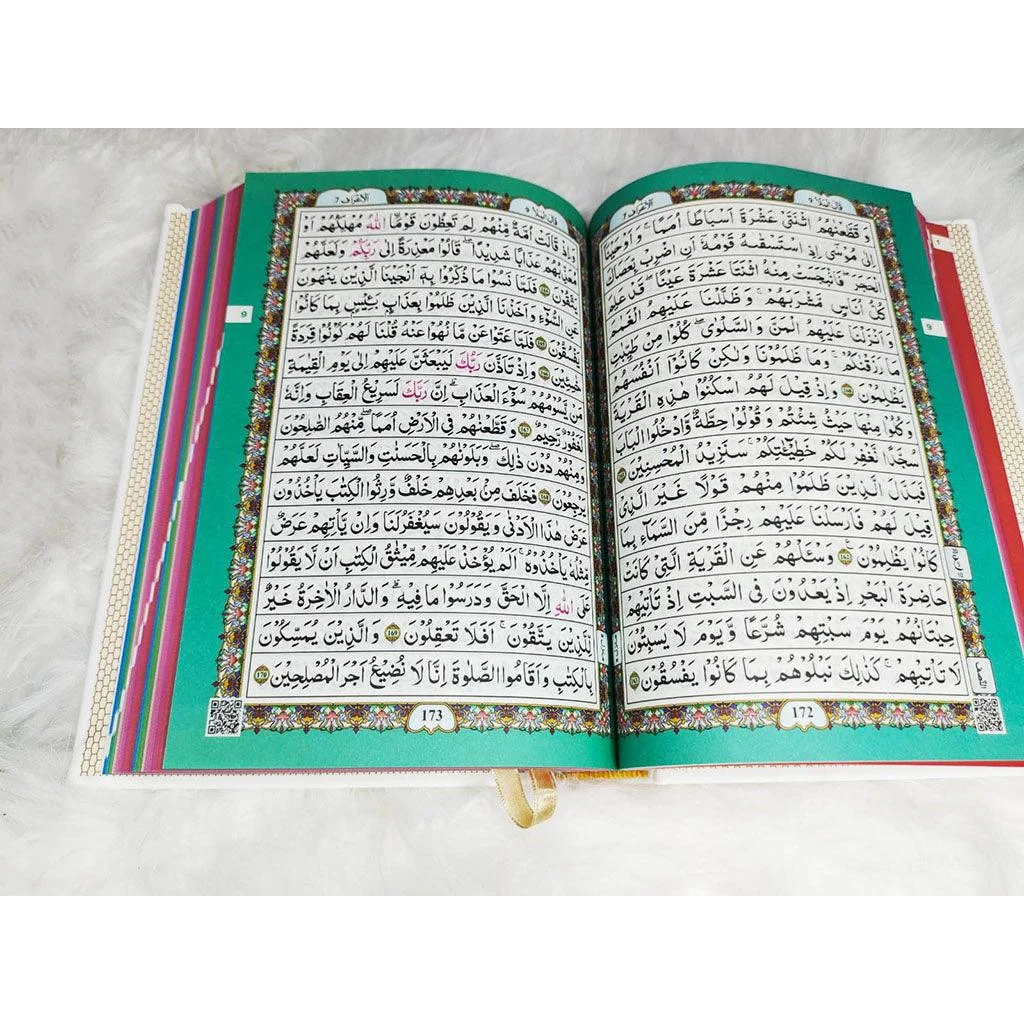 الاعراف ٧
قال الملا ٩
وَ قَطَّعْنٰهُمُ اثْنَتَیْ عَشْرَةَ اَسْبَاطًا اُمَمًا ؕ وَ اَوْحَیْنَاۤ
اِلٰی مُوْسٰۤی اِذِ اسْتَسْقٰىهُ قَوْمُهٗۤ اَنِ اضْرِبْ بِّعَصَاكَ
الْحَجَرَ ۚ فَانْۢبَجَسَتْ مِنْهُ اثْنَتَا عَشْرَةَ عَیْنًا ؕ قَدْ عَلِمَ
كُلُّ اُنَاسٍ مَّشْرَبَهُمْ ؕ وَ ظَلَّلْنَا عَلَیْهِمُ الْغَمَامَ
وَ اَنْزَلْنَا عَلَیْهِمُ الْمَنَّ وَ السَّلْوٰی ؕ كُلُوْا مِنْ طَیِّبٰتِ
مَا رَزَقْنٰكُمْ ؕ وَ مَا ظَلَمُوْنَا وَ لٰكِنْ كَانُوْۤا اَنْفُسَهُمْ
یَظْلِمُوْنَ ١٦٠ وَ اِذْ قِیْلَ لَهُمُ اسْكُنُوْا هٰذِهِ الْقَرْیَةَ
وَ كُلُوْا مِنْهَا حَیْثُ شِئْتُمْ وَ قُوْلُوْا حِطَّةٌ وَّ ادْخُلُوا الْبَابَ
سُجَّدًا نَّغْفِرْ لَكُمْ خَطِیْٓـٰٔتِكُمْ ؕ سَنَزِیْدُ الْمُحْسِنِیْنَ ١٦١
فَبَدَّلَ الَّذِیْنَ ظَلَمُوْا مِنْهُمْ قَوْلًا غَیْرَ الَّذِیْ
قِیْلَ لَهُمْ فَاَرْسَلْنَا عَلَیْهِمْ رِجْزًا مِّنَ السَّمَآءِ بِمَا
كَانُوْا یَظْلِمُوْنَ ١٦٢ وَ سْـَٔلْهُمْ عَنِ الْقَرْیَةِ الَّتِیْ كَانَتْ
حَاضِرَةَ الْبَحْرِ ۘ اِذْ یَعْدُوْنَ فِی السَّبْتِ اِذْ تَاْتِیْهِمْ
حِیْتَانُهُمْ یَوْمَ سَبْتِهِمْ شُرَّعًا وَّ یَوْمَ لَا یَسْبِتُوْنَ
لَا تَاْتِیْهِمْ ۚۛ كَذٰلِكَ ۚۛ نَبْلُوْهُمْ بِمَا كَانُوْا یَفْسُقُوْنَ ١٦٣
172
9
1
النصف
قال الملا ٩
الاعراف ٧
وَ اِذْ قَالَتْ اُمَّةٌ مِّنْهُمْ لِمَ تَعِظُوْنَ قَوْمَا ۙ اللّٰهُ مُهْلِكُهُمْ اَوْ
مُعَذِّبُهُمْ عَذَابًا شَدِیْدًا ؕ قَالُوْا مَعْذِرَةً اِلٰی رَبِّكُمْ وَ لَعَلَّهُمْ
یَتَّقُوْنَ ١٦٤ فَلَمَّا نَسُوْا مَا ذُكِّرُوْا بِهٖۤ اَنْجَیْنَا الَّذِیْنَ یَنْهَوْنَ
عَنِ السُّوْٓءِ وَ اَخَذْنَا الَّذِیْنَ ظَلَمُوْا بِعَذَابٍۭ بَىِٕیْسٍۭ بِمَا كَانُوْا
یَفْسُقُوْنَ ١٦٥ فَلَمَّا عَتَوْا عَنْ مَّا نُهُوْا عَنْهُ قُلْنَا لَهُمْ كُوْنُوْا قِرَدَةً
خٰسِىِٕیْنَ ١٦٦ وَ اِذْ تَاَذَّنَ رَبُّكَ لَیَبْعَثَنَّ عَلَیْهِمْ اِلٰی یَوْمِ الْقِیٰمَةِ
مَنْ یَّسُوْمُهُمْ سُوْٓءَ الْعَذَابِ ؕ اِنَّ رَبَّكَ لَسَرِیْعُ الْعِقَابِ ۖۚ وَ اِنَّهٗ
لَغَفُوْرٌ رَّحِیْمٌ ١٦٧ وَ قَطَّعْنٰهُمْ فِی الْاَرْضِ اُمَمًا ۚ مِنْهُمُ الصّٰلِحُوْنَ
وَ مِنْهُمْ دُوْنَ ذٰلِكَ ؗ وَ بَلَوْنٰهُمْ بِالْحَسَنٰتِ وَ السَّیِّاٰتِ لَعَلَّهُمْ
یَرْجِعُوْنَ ١٦٨ فَخَلَفَ مِنْۢ بَعْدِهِمْ خَلْفٌ وَّرِثُوا الْكِتٰبَ یَاْخُذُوْنَ
عَرَضَ هٰذَا الْاَدْنٰی وَ یَقُوْلُوْنَ سَیُغْفَرُ لَنَا ۚ وَ اِنْ یَّاْتِهِمْ عَرَضٌ
مِّثْلُهٗ یَاْخُذُوْهُ ؕ اَلَمْ یُؤْخَذْ عَلَیْهِمْ مِّیْثَاقُ الْكِتٰبِ اَنْ لَّا یَقُوْلُوْا
عَلَی اللّٰهِ اِلَّا الْحَقَّ وَ دَرَسُوْا مَا فِیْهِ ؕ وَ الدَّارُ الْاٰخِرَةُ خَیْرٌ
لِّلَّذِیْنَ یَتَّقُوْنَ ؕ اَفَلَا تَعْقِلُوْنَ ١٦٩ وَ الَّذِیْنَ یُمَسِّكُوْنَ
بِالْكِتٰبِ وَ اَقَامُوا الصَّلٰوةَ ؕ اِنَّا لَا نُضِیْعُ اَجْرَ الْمُصْلِحِیْنَ ١٧٠
173
9